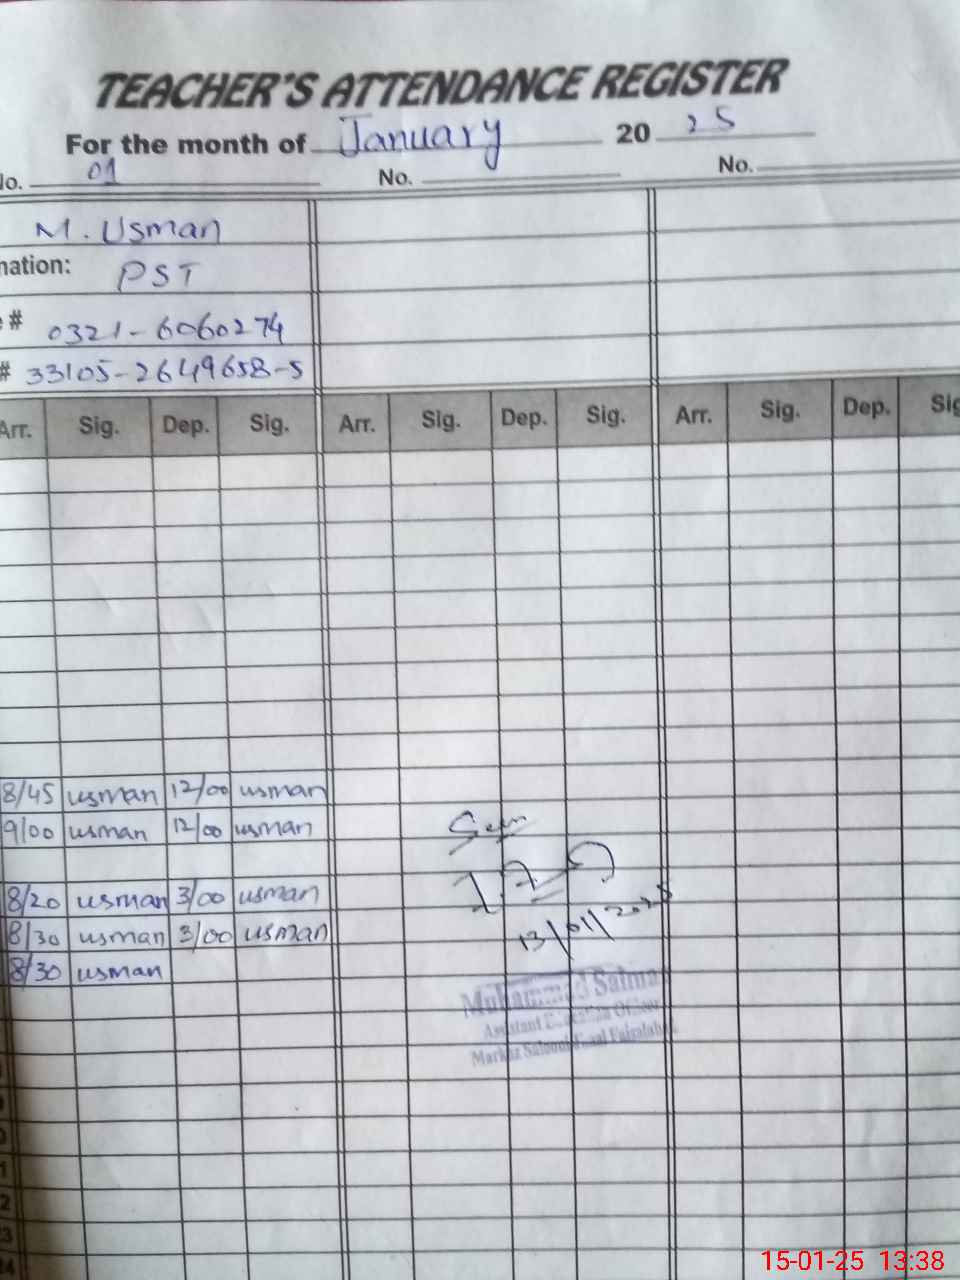 TEACHER'S ATTENDANCE REGISTER
For the month of January 20 25
No. 01 No. No.
M. Usman
nation: PST
# 0321-6060274
# 33105-2649658-5
Arr. Sig. Dep. Sig. Arr. Sig. Dep. Sig. Arr. Sig. Dep. Sig
8/45 usman 12/00 usman
9/00 usman 12/00 usman
Seen
8/20 usman 3/00 usman
8/30 usman 3/00 usman
13/01/2025
8/30 usman
Muhammad Salma
Assistant Education Officer
Markaz Faisalabad
15-01-25 13:38